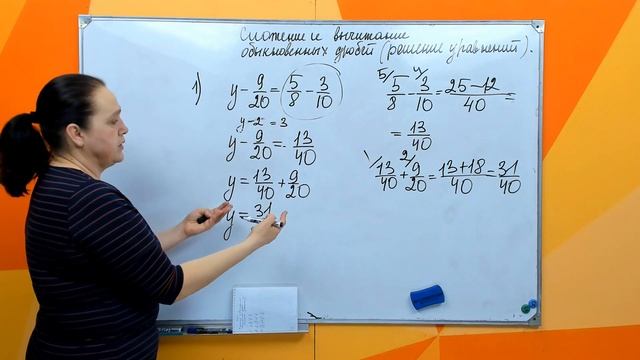 Сложение и вычитание
обыкновенных дробей (решение уравнений).
1) y - 9/20 = 5/8 - 3/10
y - 2 = 3
y - 9/20 = 13/40
y = 13/40 + 9/20
y = 31
5/ 5/8 - 4/ 3/10 = 25-12/40 =
= 13/40
\ 13/40 + 2/ 9/20 = 13+18/40 = 31/40